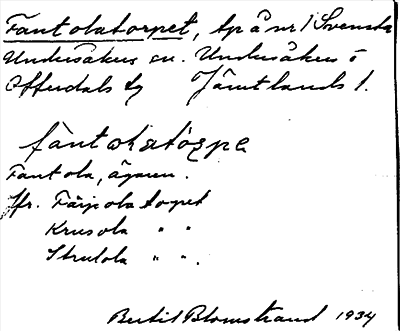 Fantolatorpet, tp å nr 1 Svenska
Undersåkers sn. Undersåkers o
Offerdals tg Jämtlands l.
fàntolatòrpe
Fantola, ägaren.
Jfr. Färjolatorpet
Krusola " "
Strulola " ".
Bertil Blomstrand 1934